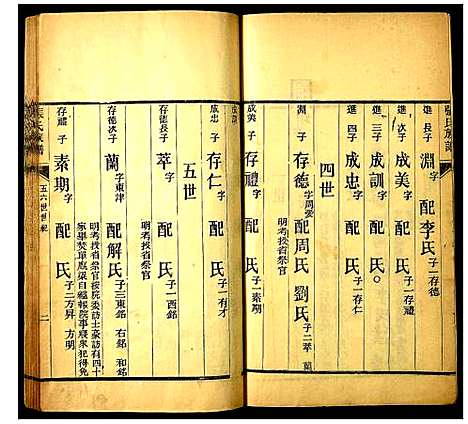 張氏族譜
進 長子 淵 字 配 李氏 子一存德
進 二子 成美 字 配 氏 子一存禮
進 三子 成訓 字 配 氏 〇
進 四子 成忠 字 配 氏 子一存仁
四世
淵 子 存德 字周雲 配 周氏 劉氏 子二萃 蘭
明考授省祭官
成美 子 存禮 字 配 氏 子一素期
成訓
成忠 子 存仁 字 配 氏 子一有才
五世
存德長子 萃 字 配 氏 子一西銘
明考授省祭官
存德次子 蘭 字東津 配 解氏 子三東銘 右銘 和銘
明考授省祭官
存禮 子 素期 字 配 氏 子二方昇 方明
張氏族譜
五六世世紀
二